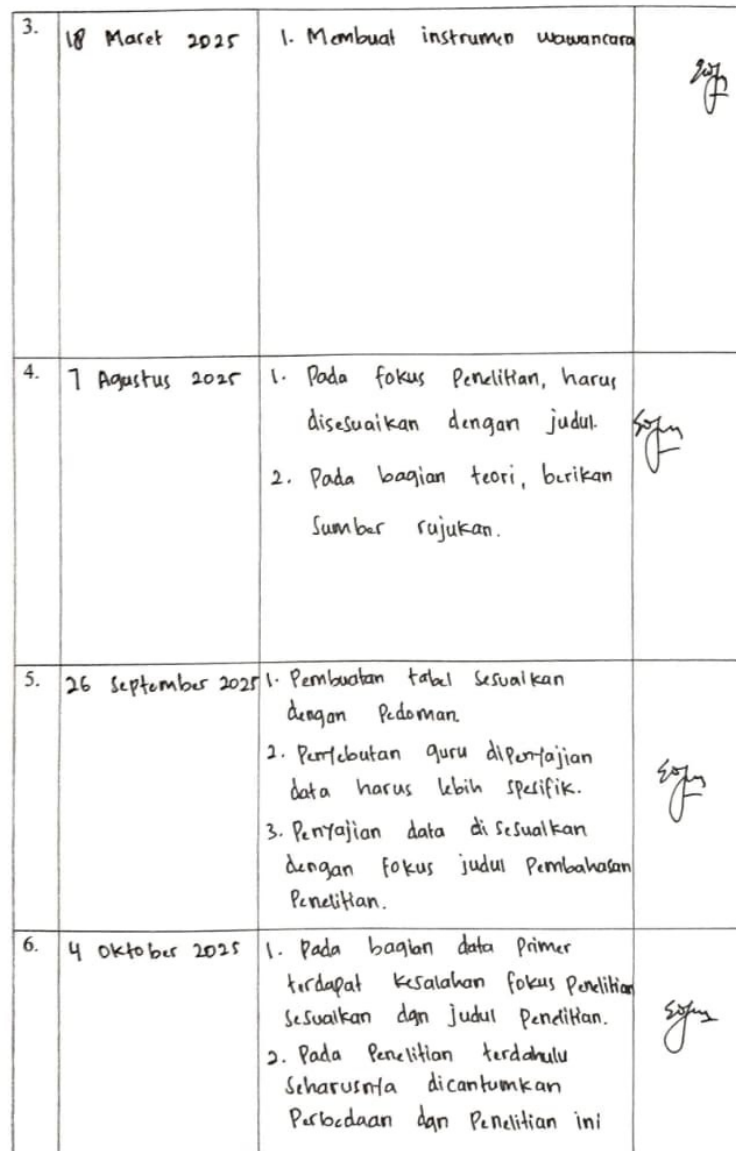 3.
18 Maret 2025
1. Membuat instrumen wawancara
4.
7 Agustus 2025
1. Pada fokus Penelitian, harus
disesuaikan dengan judul.
2. Pada bagian teori, berikan
Sumber rujukan.
5.
26 September 2025
1. Pembuatan tabel Sesuaikan
dengan Pedoman.
2. Penyebutan guru dipenyajian
data harus lebih spesifik.
3. Penyajian data di sesuaikan
dengan fokus judul Pembahasan
Penelitian.
6.
4 Oktober 2025
1. Pada bagian data Primer
terdapat kesalahan fokus Penelitian
Sesuaikan dgn judul Penelitian.
2. Pada Penelitian terdahulu
Seharusnya dicantumkan
Perbedaan dgn Penelitian ini